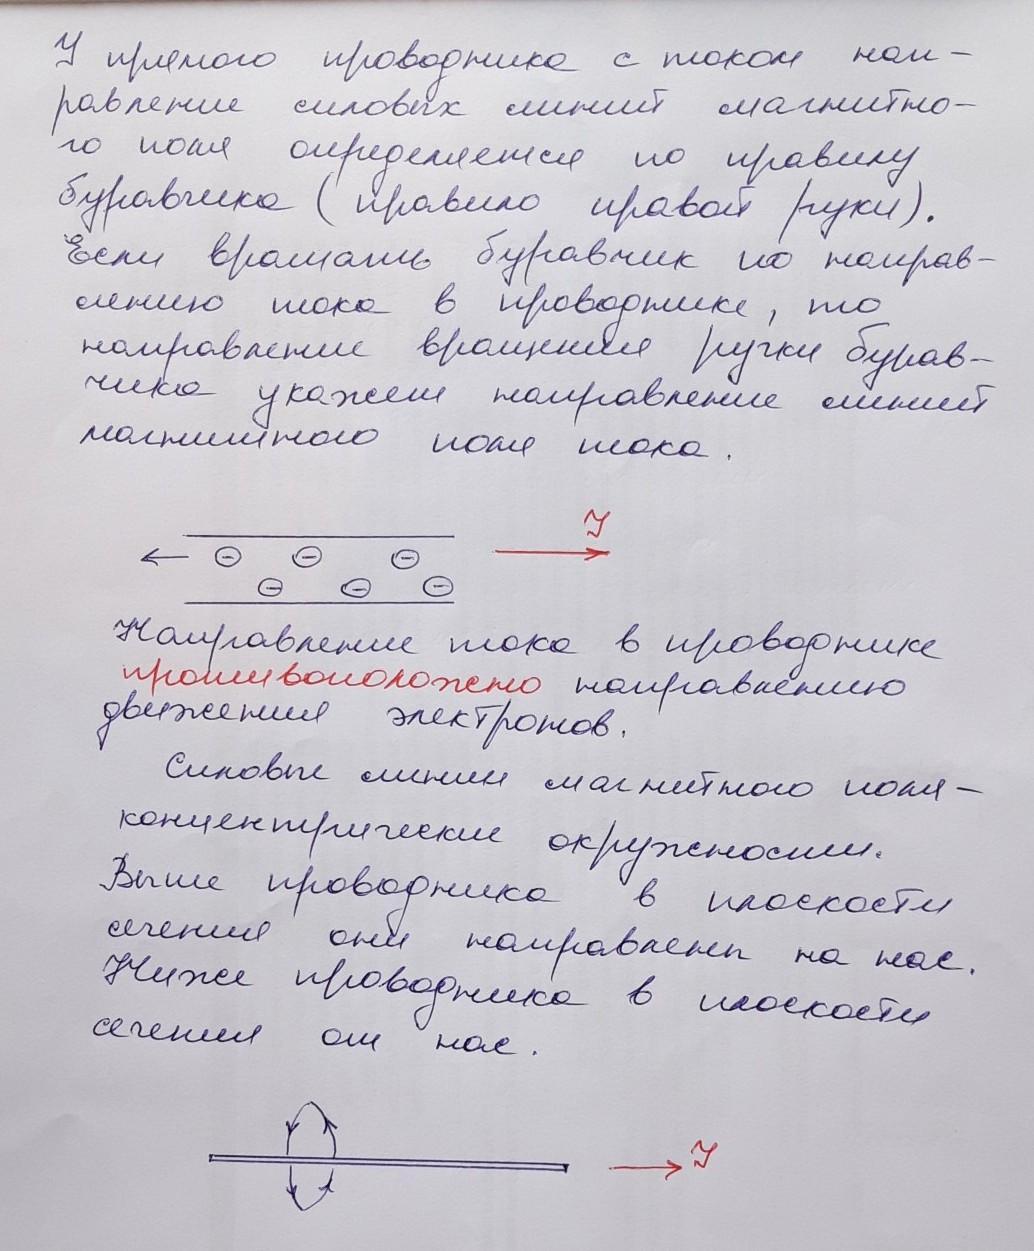 У прямого проводника с током нап-
равление силовых линий магнитно-
го поля определяется по правилу
буравчика (правило правой руки).
Если вращать буравчик по направ-
лению тока в проводнике, то
направление вращения ручки бурав-
чика укажет направление линий
магнитного поля тока.
I
Направление тока в проводнике
противоположено направлению
движения электронов.
Силовые линии магнитного поля -
концентрические окружности.
Выше проводника в плоскости
сечения они направлены на нас.
Ниже проводника в плоскости
сечения от нас.
I